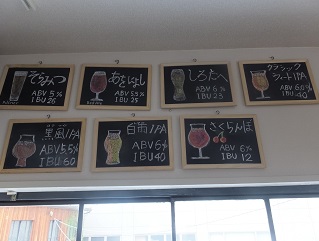 そらみつ
ABV 5%
IBU 26
あをによし
ABV 5.5%
IBU 25
しろたへ
ABV 6%
IBU 23
クラシック
ABV 6.0%
IBU 40
黒風IPA
ABV 5.5%
IBU 60
白茜IPA
ABV 6%
IBU 40
さくらんぼ
ABV 6%
IBU 12